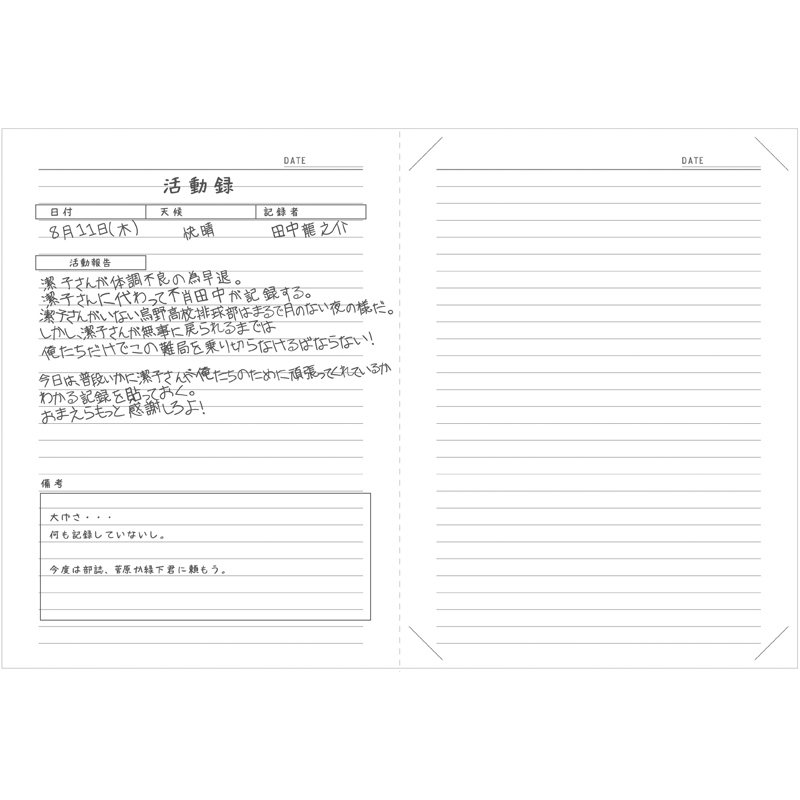 DATE
DATE
活動録
日付 天候 記録者
8月11日(木) 快晴 田中龍之介
活動報告
潔子さんが体調不良の為早退。
潔子さんに代わって不肖田中が記録する。
潔子さんがいない烏野高校排球部はまるで月のない夜の様だ。
しかし、潔子さんが無事に戻られるまでは
俺たちだけでこの難局を乗り切らなければならない!
今日は、普段いかに潔子さんが俺たちのために頑張ってくれているか
わかる記録を貼っておく。
おまえらもっと感謝しろよ!
備考
大げさ・・・
何も記録していないし。
今度は部誌、菅原か縁下君に頼もう。